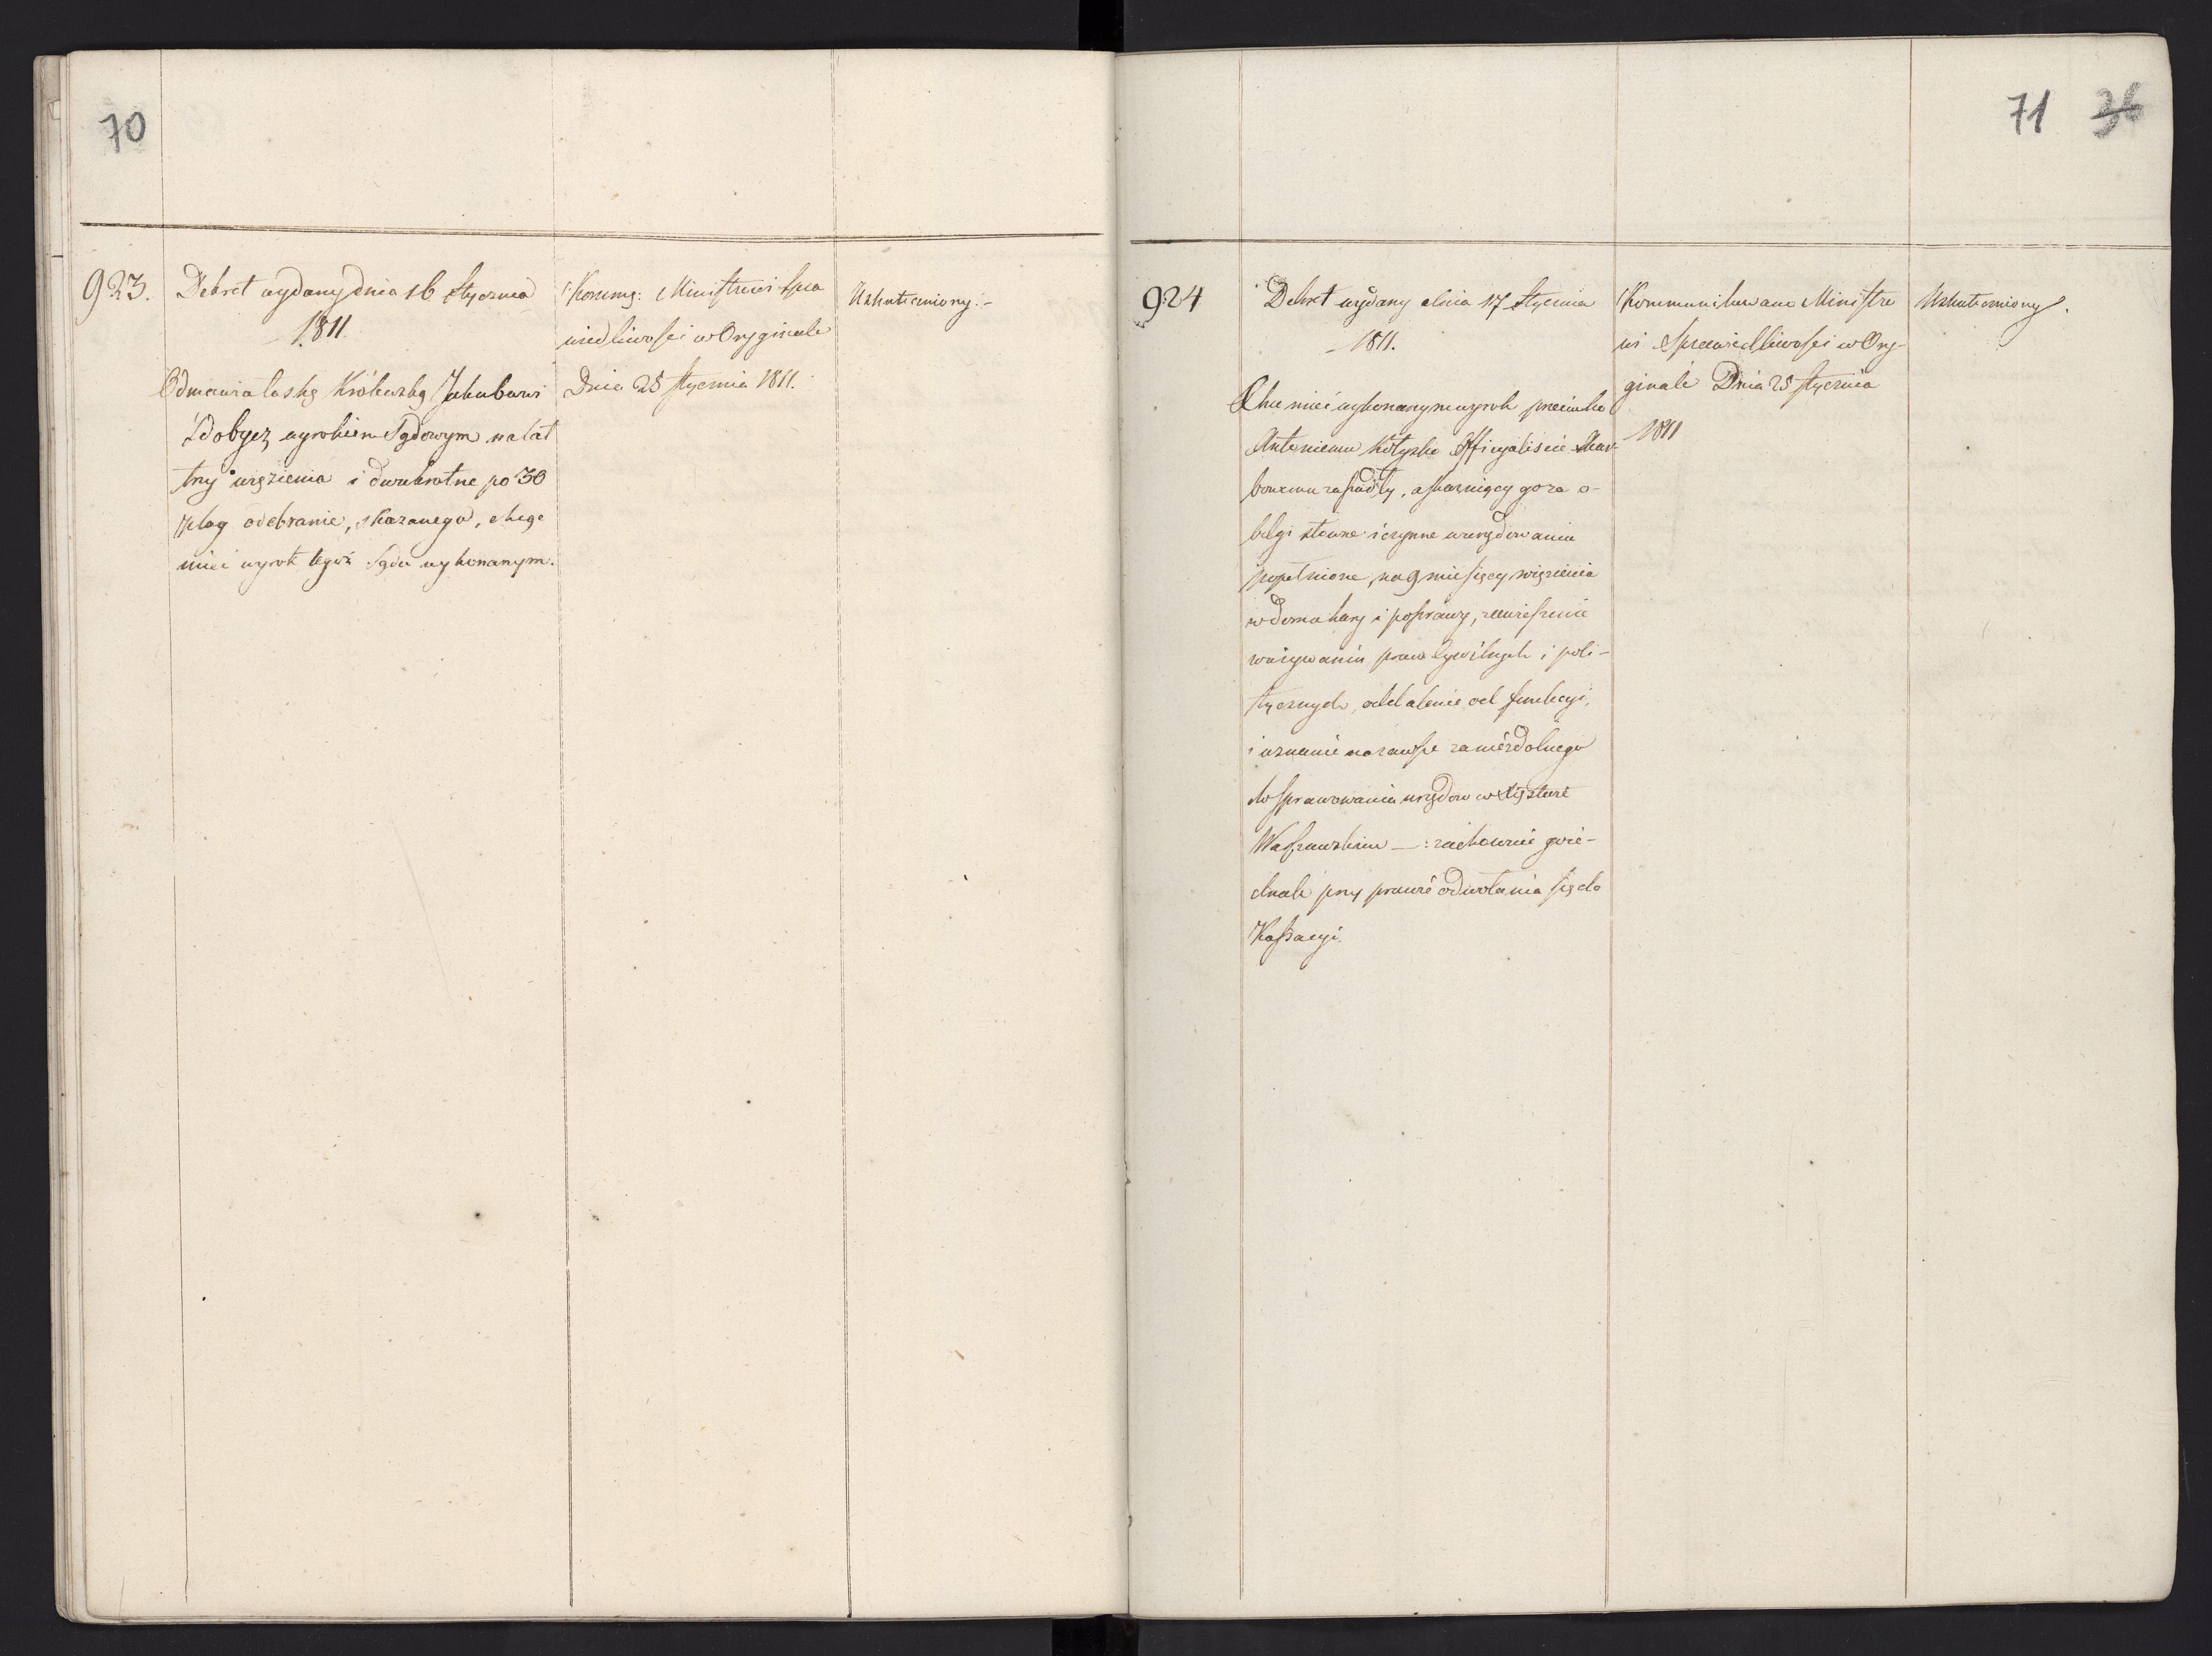 70
923.
Dekret wydany dnia 16 Stycznia
1811.
Odmawia łaskę Królewską Jakubowi
Zdobycz wyrokiem Sądowym na lat
trzy więzienia i dwukrotne po 30
plag odebranie, skazanego, chcąc
mieć wyrok tegoż Sądu wykonanym.
Kommu: Ministrowi Spra
wiedliwości w Oryginale
Dnia 25 Stycznia 1811.
Uskuteczniony.-
71 36
924
Dekret wydany dnia 17 Stycznia
1811.
Chce mieć wykonanym wyrok przeciwko
Antoniemu Officyaliście
zapadły, a skazuiący go za o-
belgi słowne i czynne w urzędowaniu
popełnione, na 9 miesięcy więzienia
w domu kary i poprawy, zawieszenie
w używaniu praw Cywilnych i poli-
tycznych, oddalenie od funkcyi,
i uznanie na zawsze za niezdolnego
do sprawowania urzędów w Xięstwie
Warszawskim —: zachowuie go ie-
dnak przy prawie odwołania się do
Kassacyi.
Kommunikowane Ministro
wi Sprawiedliwości w Ory-
ginale Dnia 25 Stycznia
1811
Uskuteczniony.